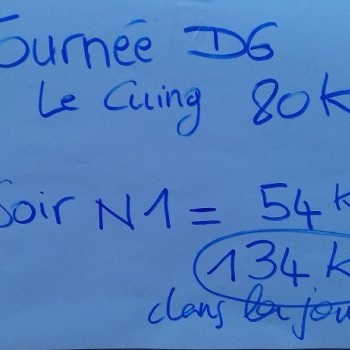 Tournée D6
Le Cuing 80 K
Soir N1 = 54 K
134 K
dans la jou